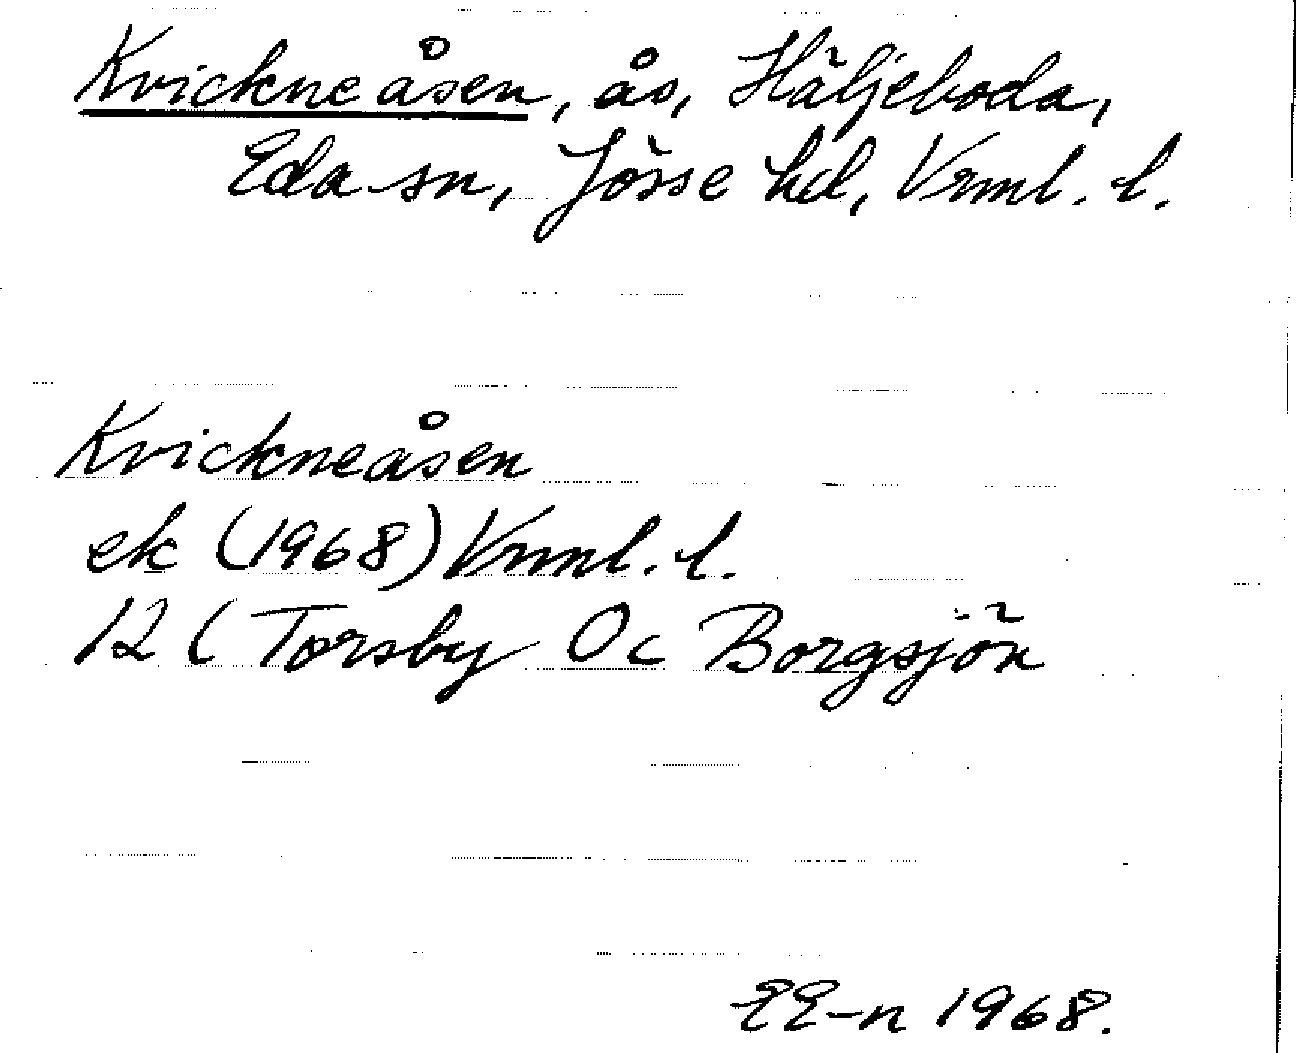 Kvickneåsen, ås, Häljeboda,
Eda sn, Jösse hd, Vrml. l.
Kvickneåsen
ek (1968) Vrml. l.
12 ( Torsby Oc Borgsjön
EE-n 1968.